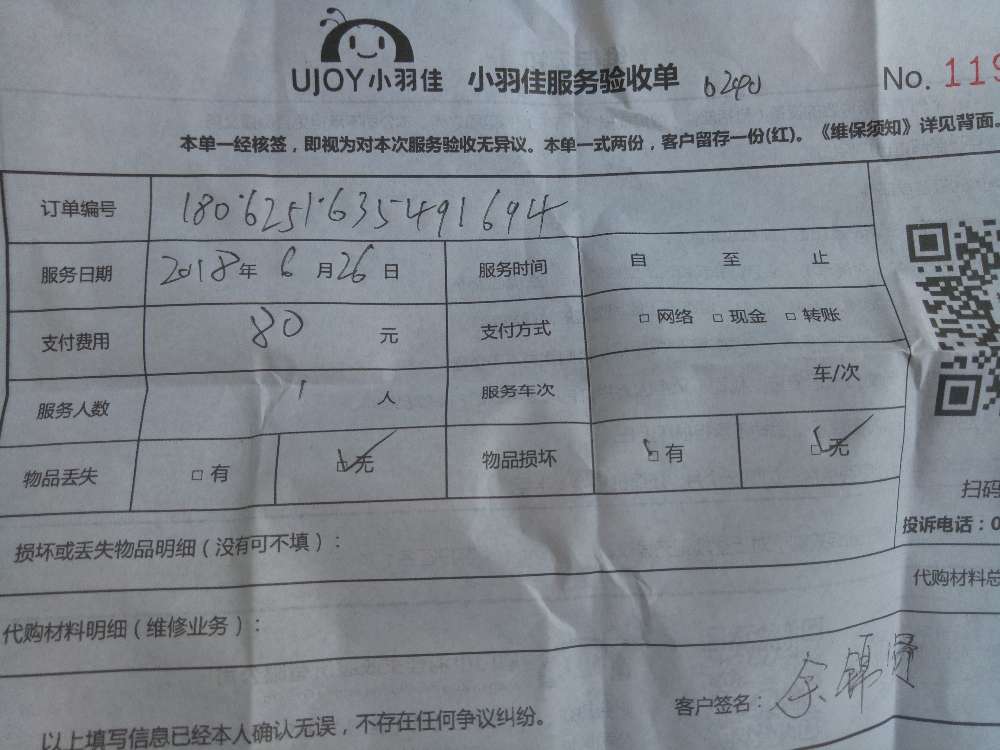 UJOY小羽佳 小羽佳服务验收单 6240 No. 119
本单一经核签，即视为对本次服务验收无异议。本单一式两份，客户留存一份(红)。《维保须知》详见背面。
订单编号 1806251635491694
服务日期 2018年 6 月26日 服务时间 自 至 止
支付费用 80 元 支付方式 □ 网络 □ 现金 □ 转账
服务人数 1 人 服务车次 车/次
物品丢失 □ 有 □ 无 物品损坏 □ 有 □ 无
扫码
损坏或丢失物品明细（没有可不填）： 投诉电话：0
代购材料明细（维修业务）： 代购材料总
以上填写信息已经本人确认无误，不存在任何争议纠纷。 客户签名：余锦贤